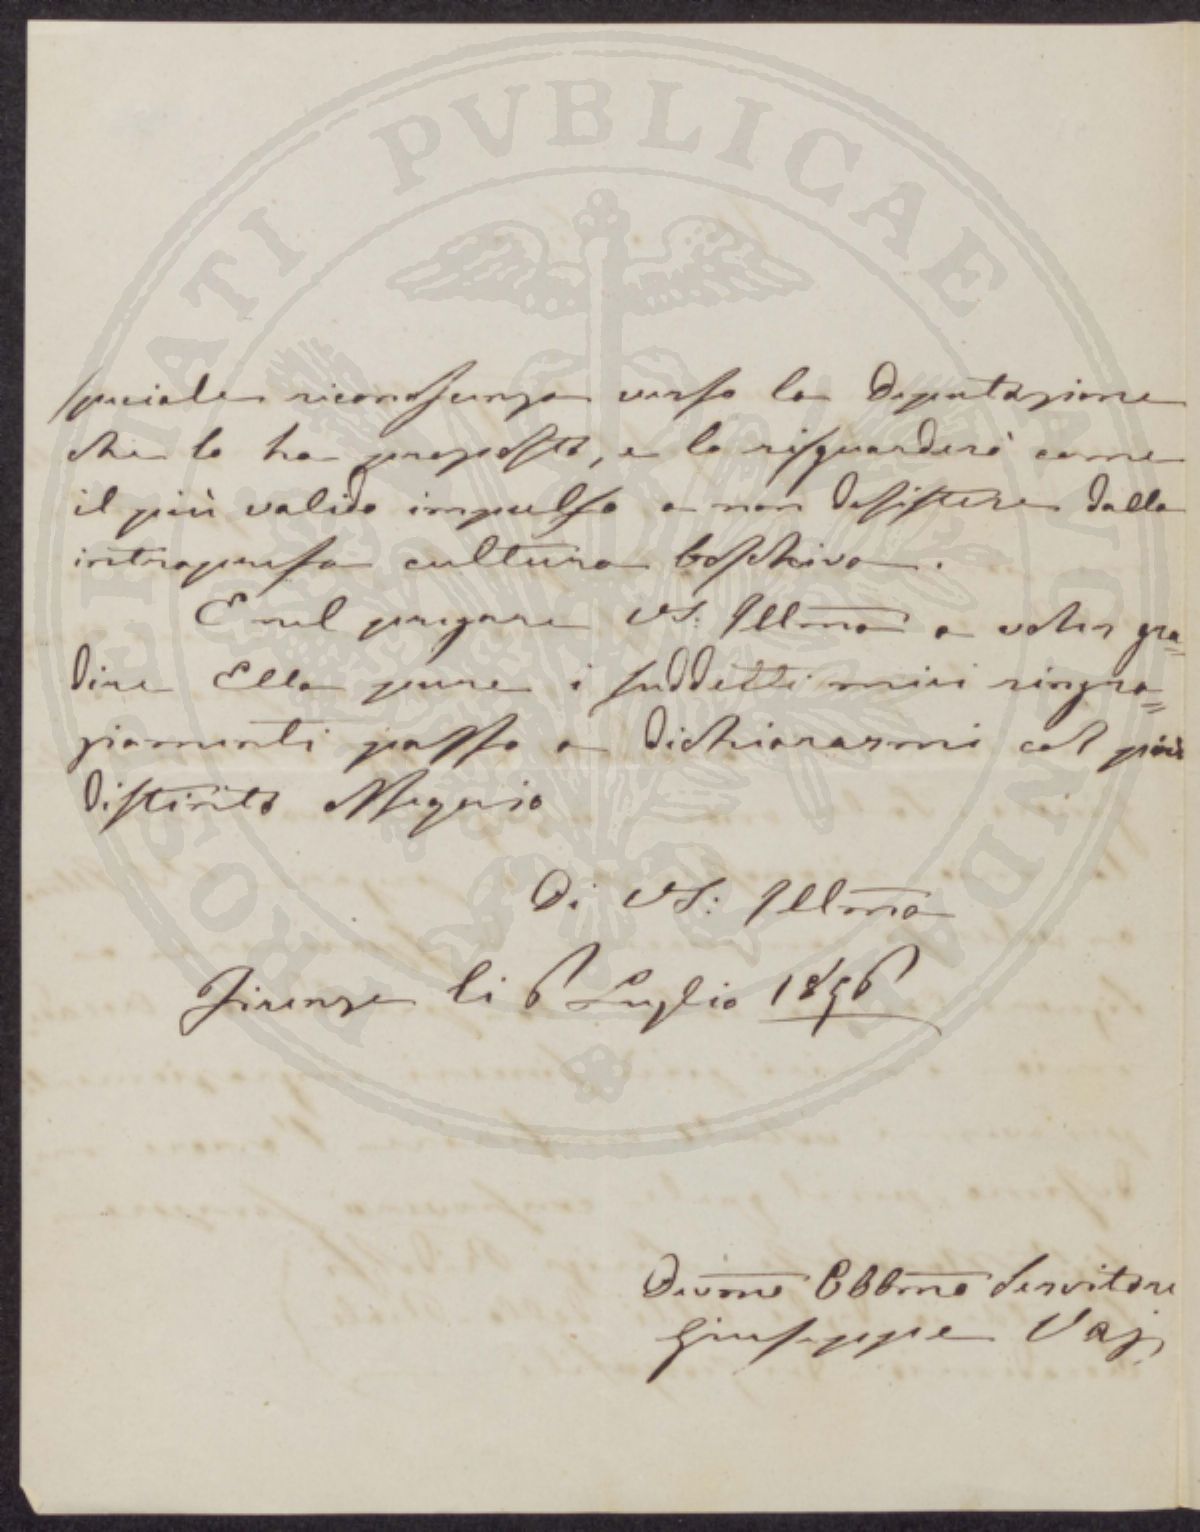 PROSPERITATI PVBLICAE AVGENDAE
speciale riconoscenza verso la Deputazione
che lo ha proposto, e lo risguarderò come
il più valido impulso a non desistere dalla
intrapresa cultura boschiva.
E nel pregare VS: Illma a voler gra=
dire Ella pure i suddetti miei ringra=
ziamenti passo a dichiararmi col più
distinto Ossequio
Di VS: Illma
Firenze li 6 Luglio 1856
Devmo Obbmo Servitore
Giuseppe Vaj